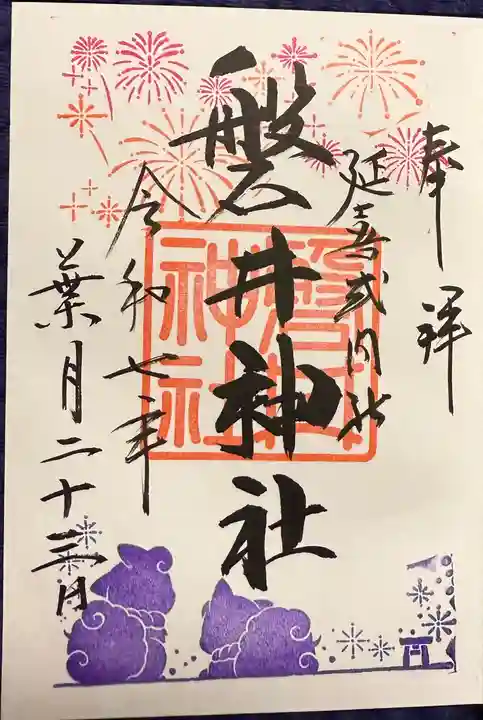 奉拝
延喜式内社
磐井神社
磐井
神社
令和七年
葉月二十三日